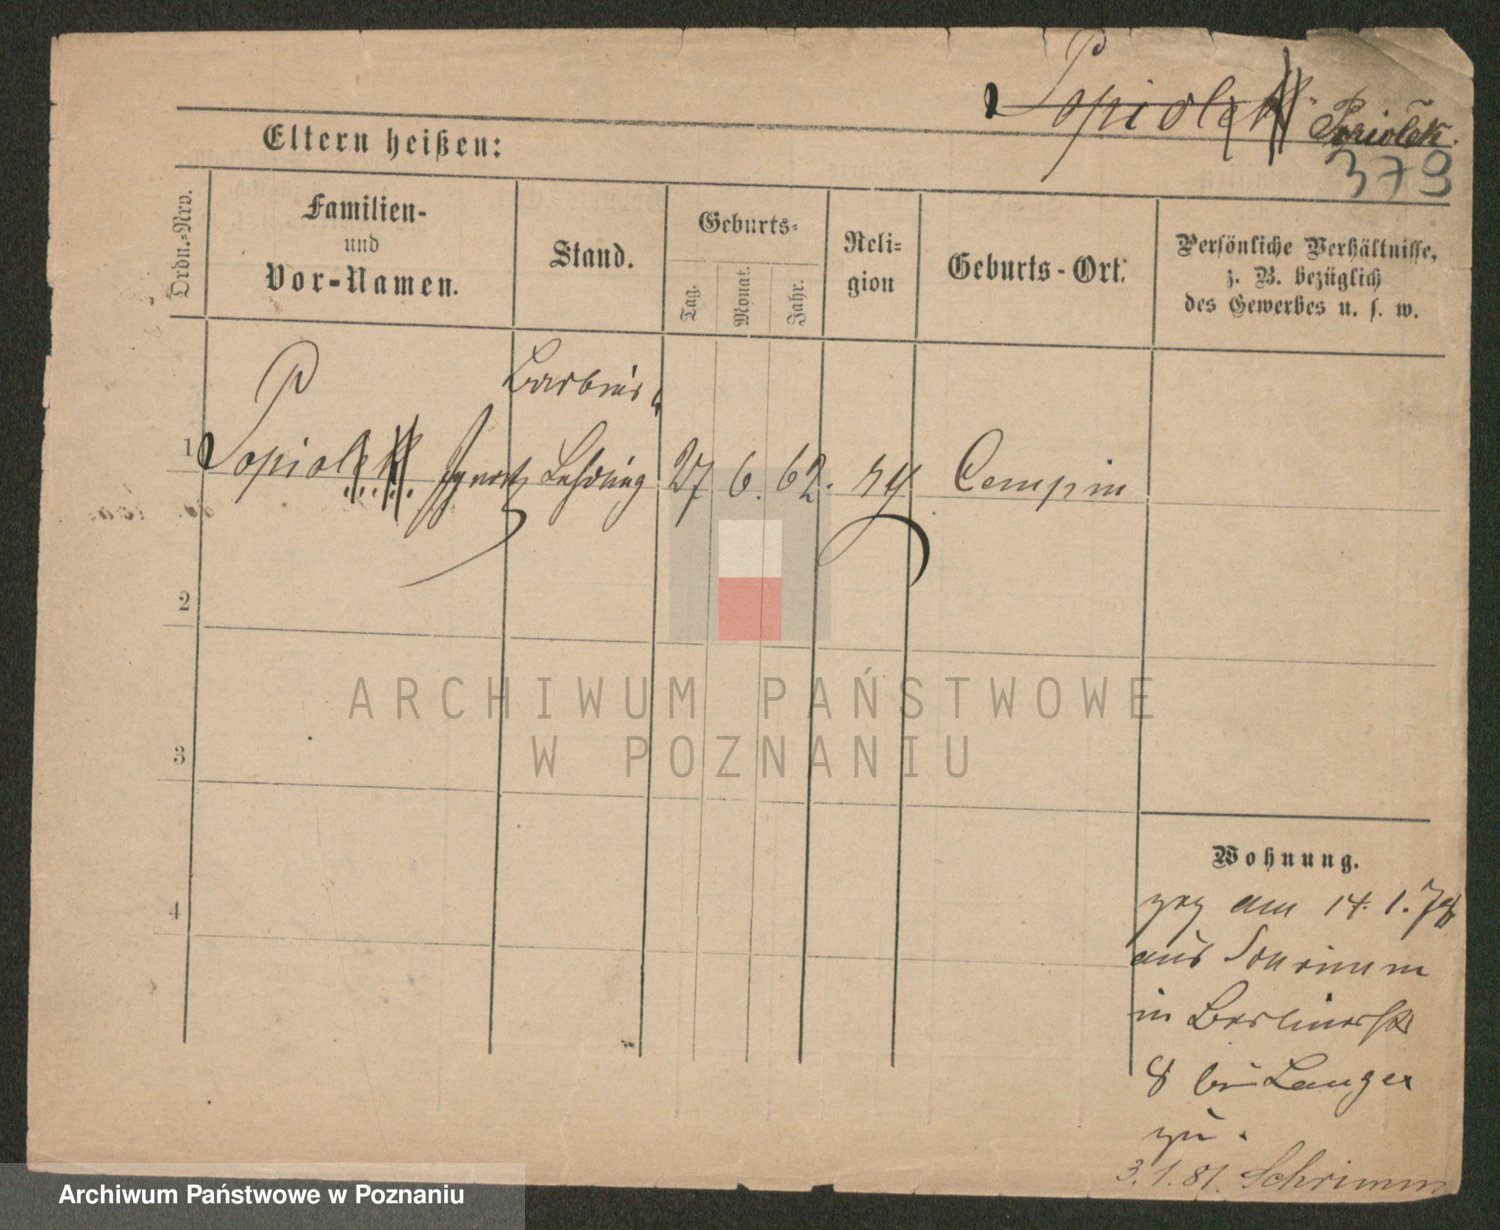 Popiolek Popiolek.
379
Eltern heißen:
Ordn.-Nro.
Familien-
und
Vor-Namen.
Stand.
Geburts-
Tag.
Monat.
Jahr.
Reli-
gion
Geburts-Ort.
Persönliche Verhältnisse,
z. B. bezüglich
des Gewerbes u. s. w.
Barbier
1 Popiolek Ignatz Lehrling 27 6. 62. Czempin
2
ARCHIWUM PAŃSTWOWE
W POZNANIU
3
4
Wohnung.
zog am 14.1.78
aus Schrimm
in Berlinerstr
8 bei Langer
zu.
3.1.81. Schrimm
Archiwum Państwowe w Poznaniu